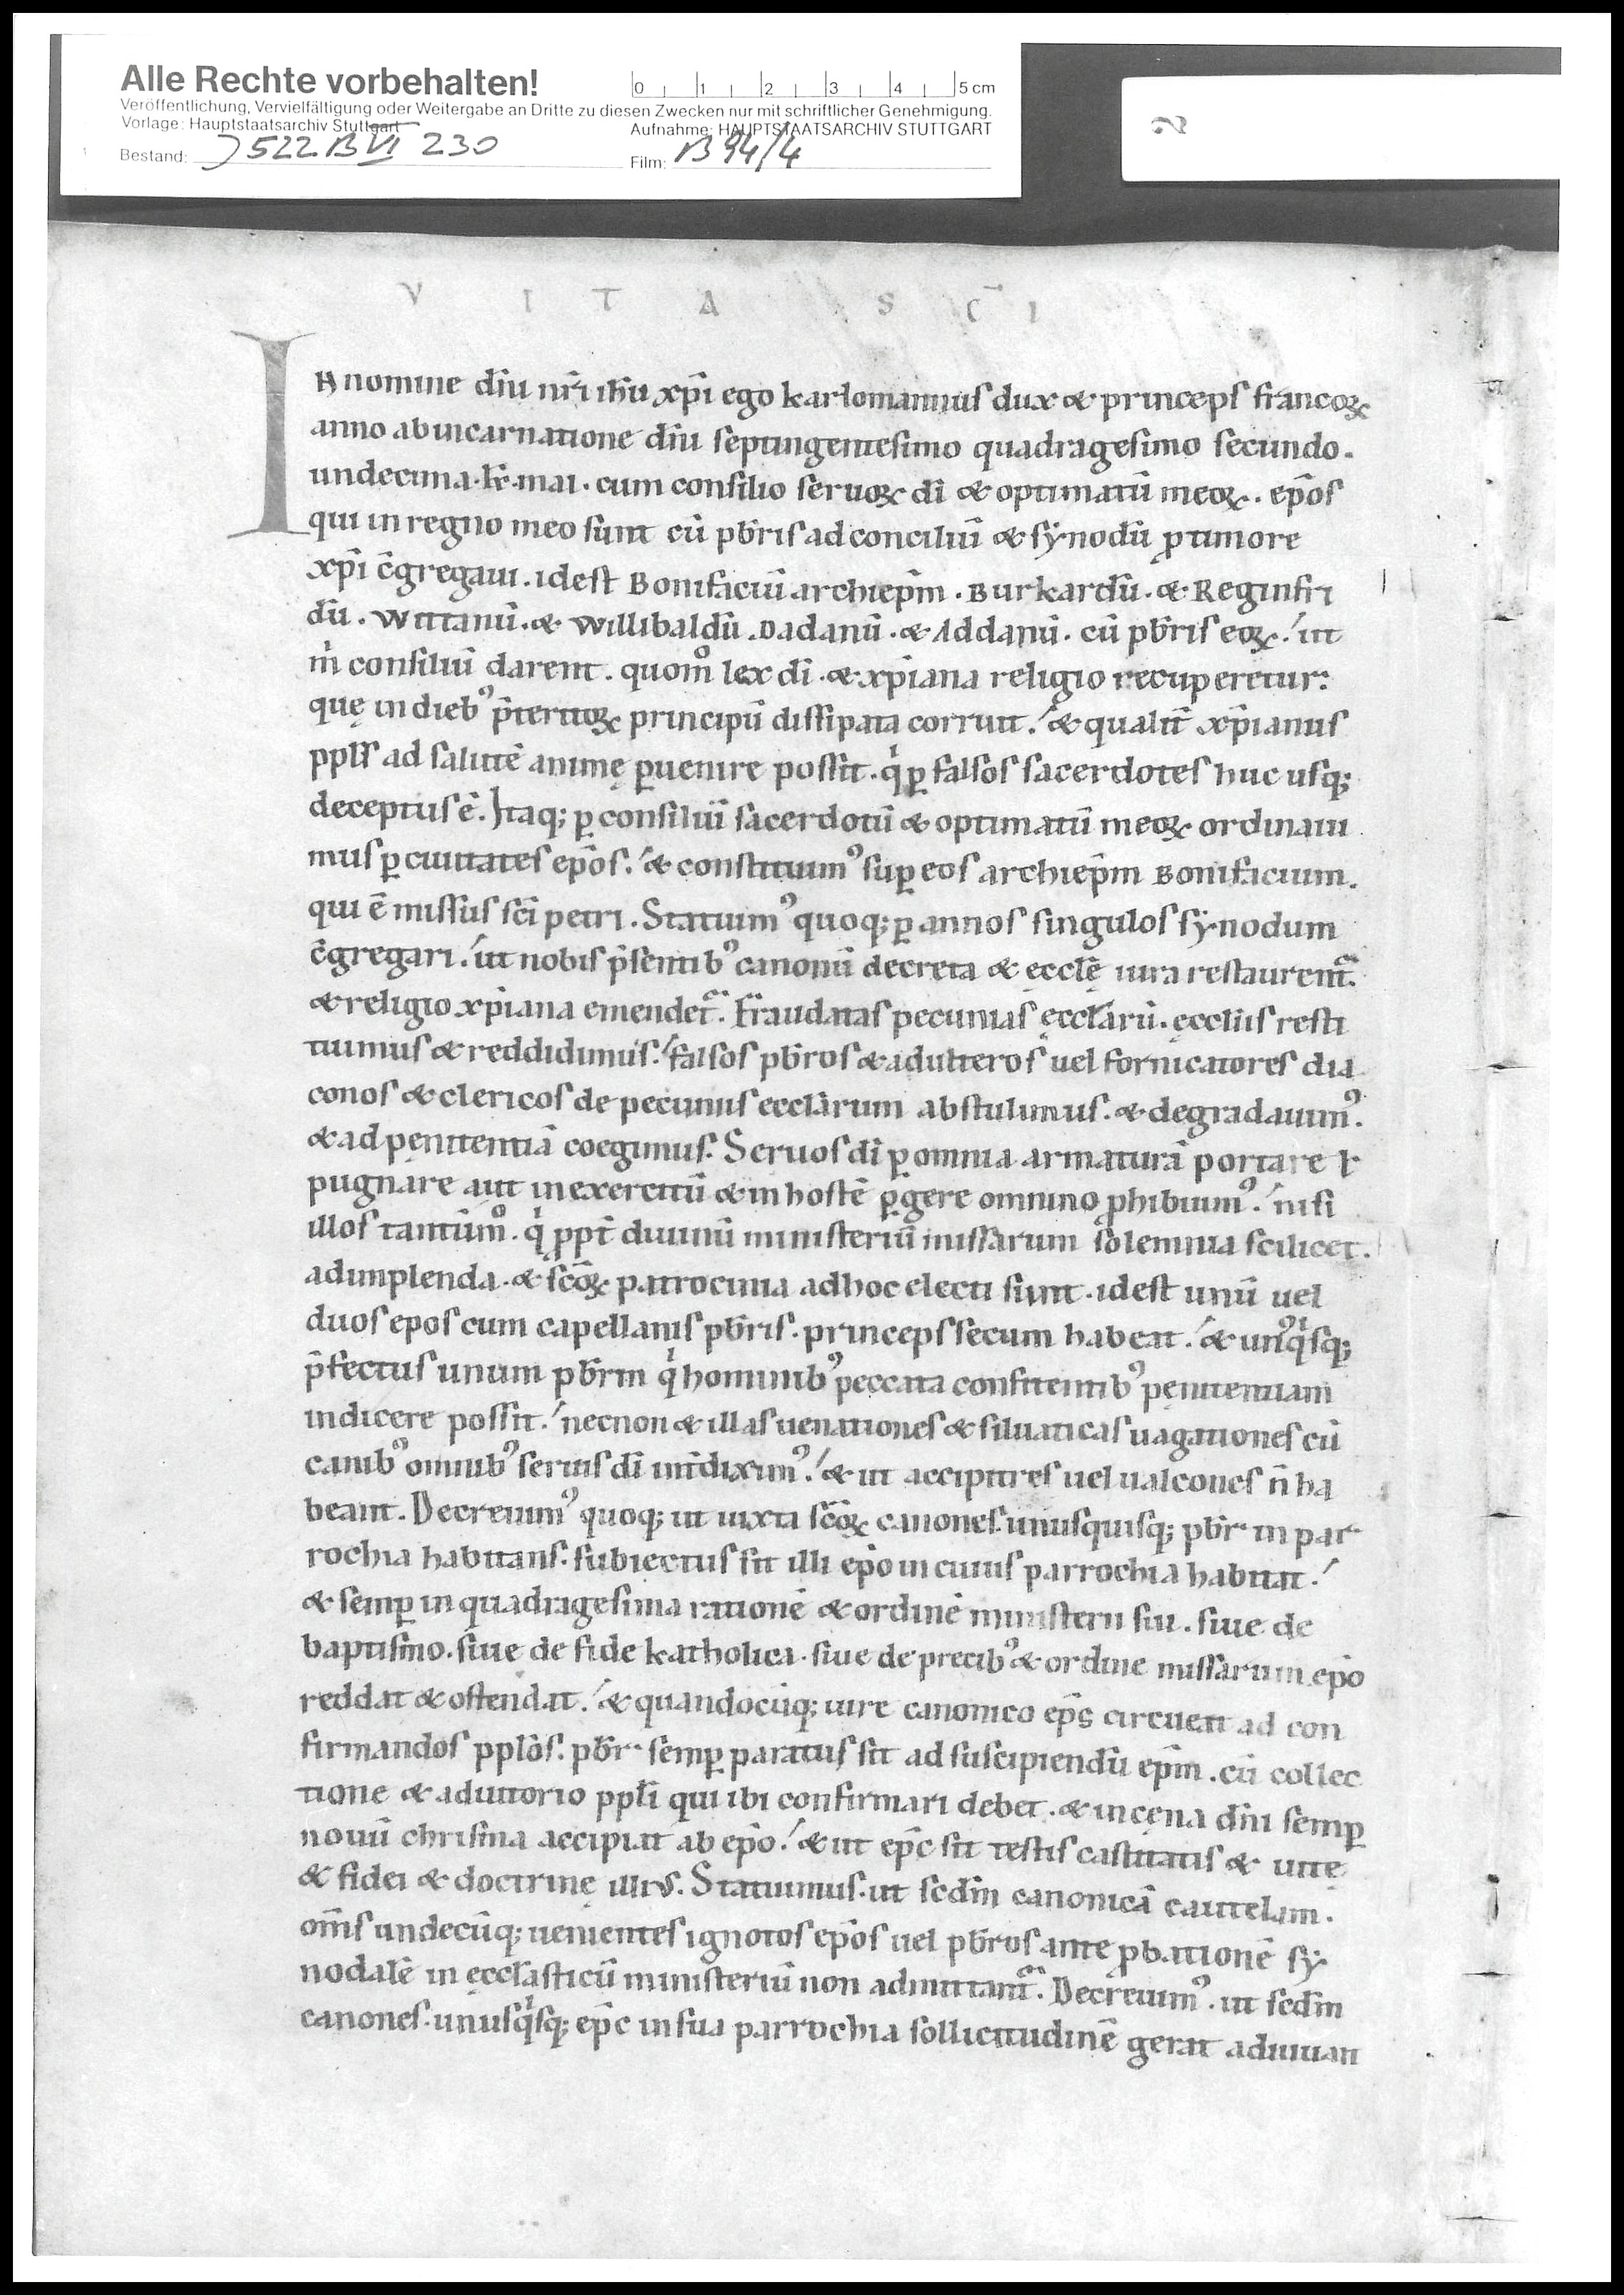 Alle Rechte vorbehalten!
0 1 2 3 4 5 cm
Veröffentlichung, Vervielfältigung oder Weitergabe an Dritte zu diesen Zwecken nur mit schriftlicher Genehmigung.
Vorlage: Hauptstaatsarchiv Stuttgart
Aufnahme: HAUPTSTAATSARCHIV STUTTGART
Bestand: J 522 B VI 230
Film: B 94/4
2
VITA SC̄I
IN nomine dn̄i nr̄i ih̄u xp̄i ego karlomannus dux & princeps francoꝝ
anno ab incarnatione dn̄i septingentesimo quadragesimo secundo.
undecima. kł. mai. cum consilio seruoꝝ dī & optimatū meoꝝ. ep̄os
qui in regno meo sunt cū pb̄ris ad conciliū & synodū ꝓ timore
xp̄i c̄gregaui. idest Bonifaciū archiep̄m. Burkardū. & Reginfri
dū. Wittanū. & Willibaldū. Dadanū. & Addanū. cū pb̄ris eoꝝ. ut
m̄ consiliū darent. quom̊ lex dī. & xp̄iana religio recuperetur.
quę in dieb᾽ p̄teritoꝝ principū dissipata corruit. & qualit̄ xp̄ianus
ppl̄s ad salutē animę ꝑuenire possit. q̇ ꝑ falsos sacerdotes huc usq;
deceptus ē. Itaq; ꝑ consiliū sacerdotū & optimatū meoꝝ ordinaui
mus ꝑ ciuitates ep̄os. & constituim᾽ suꝑ eos archiep̄m Bonifacium.
qui ē missus sc̄i petri. Statuim᾽ quoq; ꝑ annos singulos synodum
c̄gregari. ut nobis p̄sentib᾽ canonū decreta & ęcclę̄ iura restaurent᷑.
& religio xp̄iana emendet᷑. Fraudatas pecunias ęccl̄arū. ęccl̄iis resti
tuimus & reddidimus. falsos pb̄ros & adulteros uel fornicatores dia
conos & clericos de pecuniis eccl̄arum abstulimus. & degradauim᾽.
& ad pęnitentiā coegimus. Seruos dī ꝑ omnia armaturā portare ł
pugnare aut in exercitū & in hostē ꝑgere omnino ꝓhibuim᾽. nisi
illos tantūm̊. q̇ ꝓpt̄ diuinū ministeriū missarum solemnia scilicet.
adimplenda. & sc̄oꝝ patrocinia ad hoc electi sunt. idest unū uel
duos epos cum capellanis pb̄ris. princeps secum habeat. & un᾽q̇sq;
p̄fectus unum pb̄rm q̇ hominib᾽ peccata confitentib᾽ pęnitentiam
indicere possit. necnon & illas uenationes & siluaticas uagationes cū
canib᾽ omnib᾽ seruis dī int̄dixim᾽. & ut accipitres uel ualcones n̄ ha
beant. Decreuim᾽ quoq; ut iuxta sc̄oꝝ canones. unusquisq; pb̄r in par
rochia habitans. subiectus sit illi ep̄o in cuius parrochia habitat.
& semꝑ in quadragesima rationē & ordinē ministerii sui. siue de
baptismo. siue de fide katholica. siue de precib᾽ & ordine missarum ep̄o
reddat & ostendat. & quandocūq; iure canonico ep̄s circueat ad con
firmandos ppl̄os. pb̄r semꝑ paratus sit ad suscipiendū ep̄m. cū collec
tione & adiutorio ppl̄i qui ibi confirmari debet. & in cęna dn̄i semꝑ
nouū chrisma accipiat ab ep̄o. & ut ep̄c sit testis castitatis & uitę
& fidei & doctrinę illius. Statuimus. ut scdm̄ canonicā cautelam.
om̄s undecūq; uenientes ignotos ep̄os uel pb̄ros ante ꝓbationē sy
nodalē in ęccl̄asticū ministeriū non admittant᷑. Decreuim᾽. ut scdm̄
canones. unusq̇sq; ep̄c in sua parrochia sollicitudinē gerat adiuuan